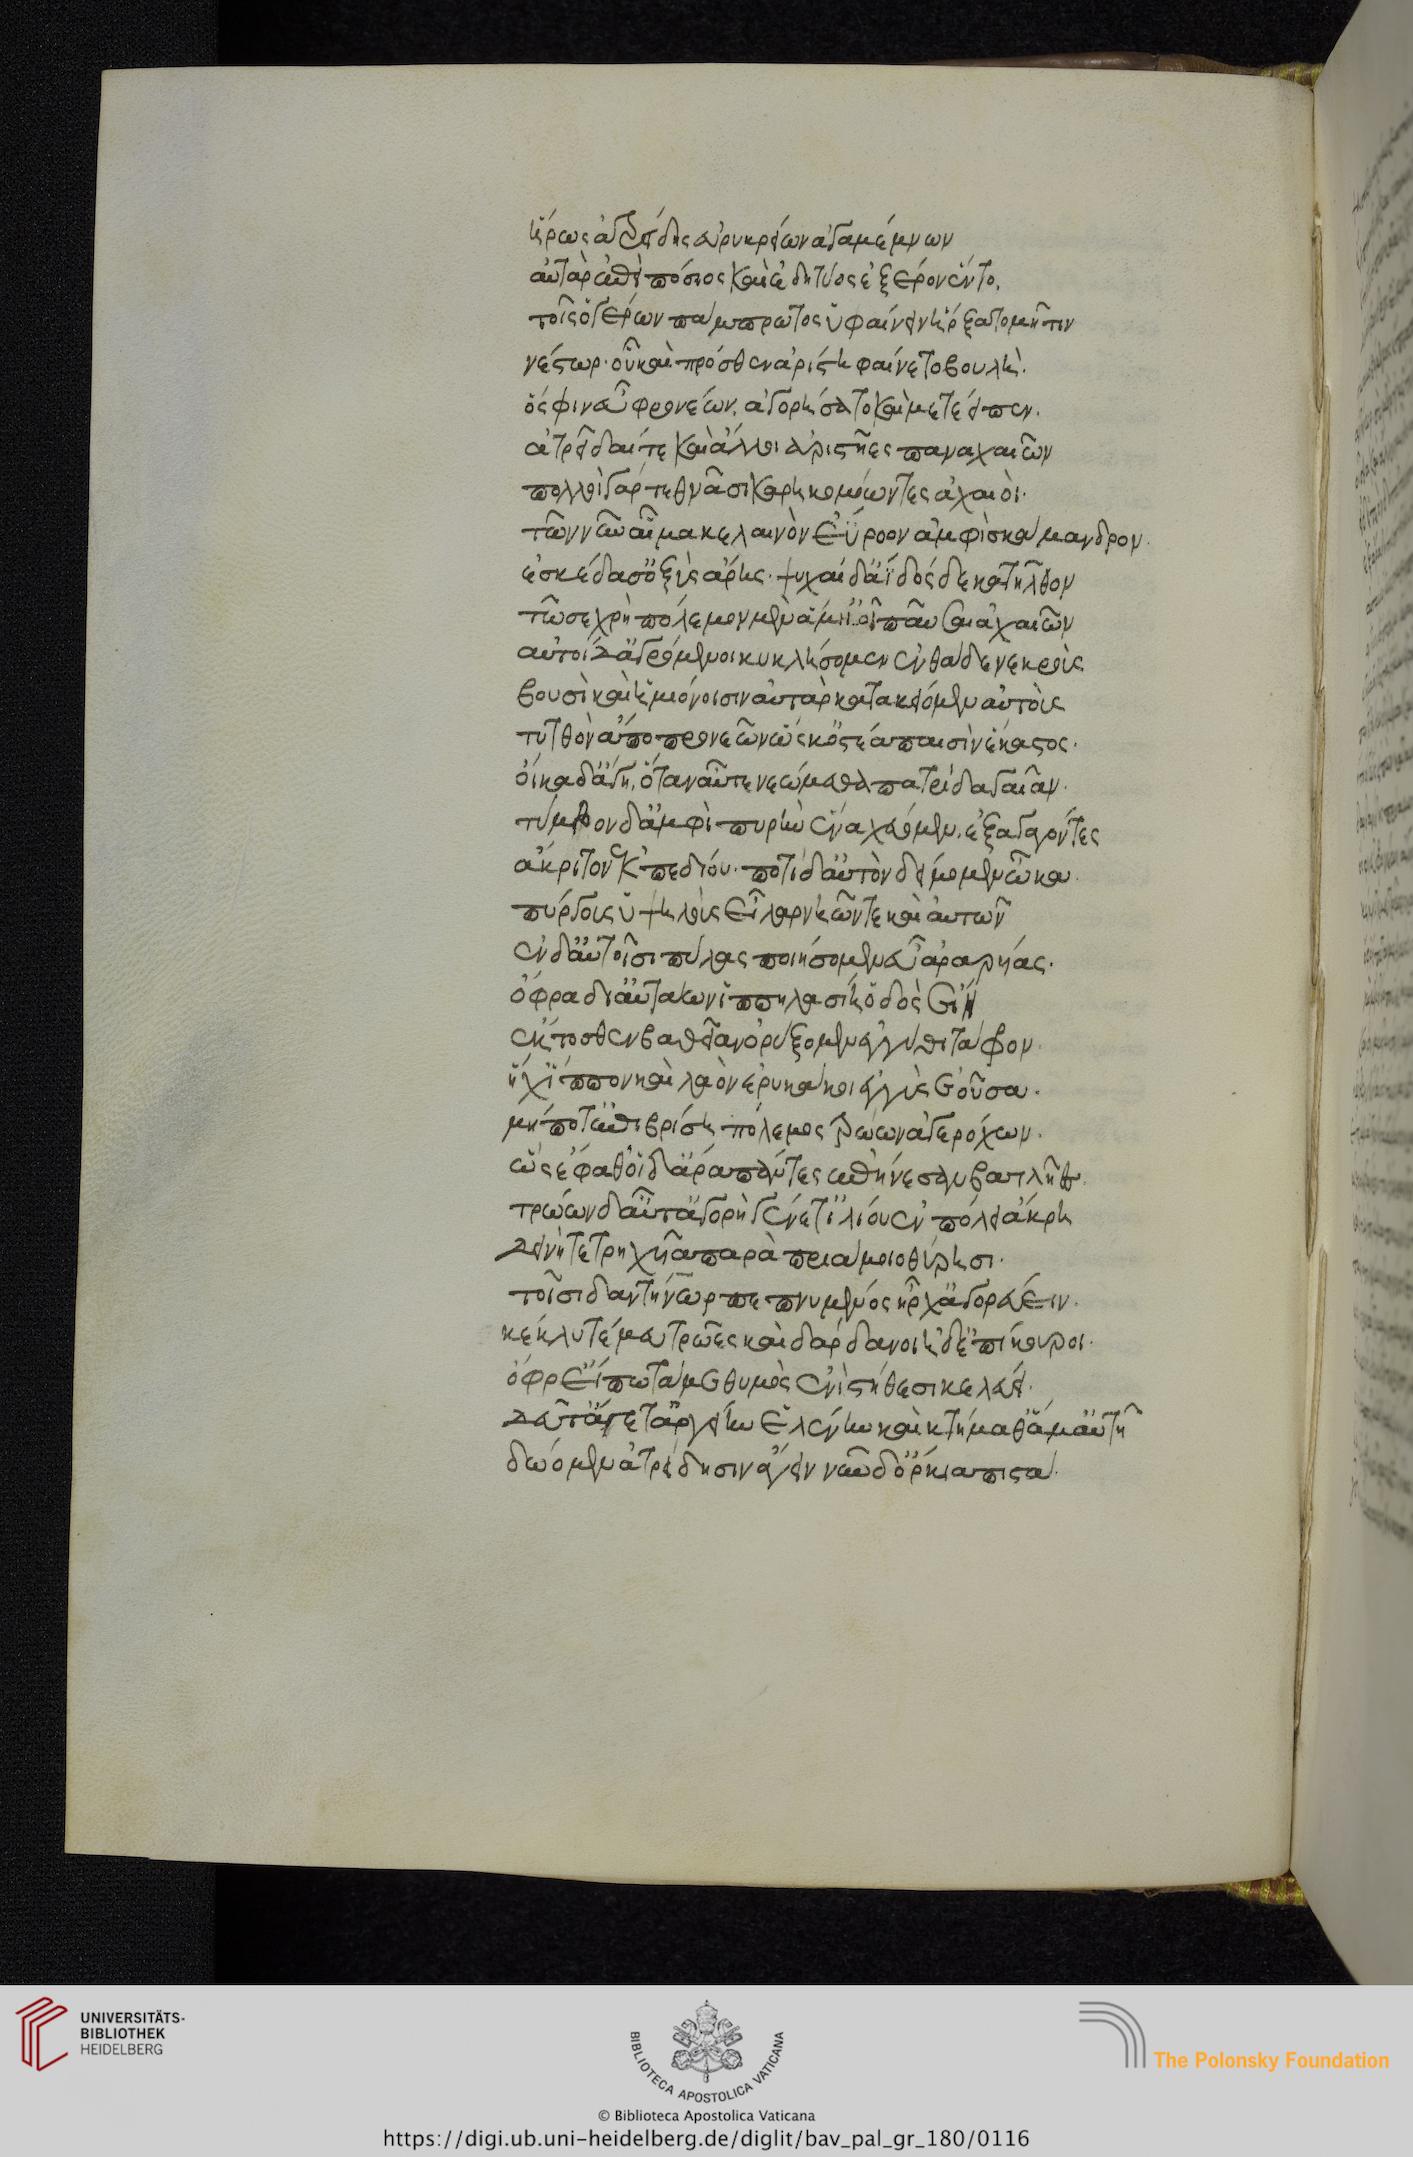 ἥρως ἀτρείδης εὐρυκρείων ἀγαμέμνων
αὐτὰρ ἐπεὶ πόσιος καὶ ἐδητύος ἐξ ἔρον ἕντο.
τοῖς ὁ γέρων πάμπρωτος ὑφαίνειν ἤρξατο μῆτιν
νέστωρ· οὗ καὶ πρόσθεν ἀρίστη φαίνετο βουλὴ.
ὅς φιν εὐφρονέων, ἀγορήσατο καὶ μετέειπεν.
ἀτρεῖδαί τε καὶ ἄλλοι ἀριστῆες παναχαιῶν
πολλοὶ γάρ τεθνᾶσι καρηκομόωντες ἀχαιοὶ.
τῶν νῦν αἷμα κελαινὸν ἐΰρροον ἀμφὶ σκάμανδρον.
ἐσκέδασ' ὀξὺς ἄρης. ψυχαὶ δ' ἄϊδόσδε κατῆλθον
τῶ σε χρὴ πόλεμον μὲν ἅμ' ἠοῖ παῦσαι ἀχαιῶν
αὐτοί δ' ἀγρόμενοι κυκλήσομεν ἐνθάδε νεκροὺς
βουσὶ καὶ ἡμιόνοισιν αὐτὰρ κατακείομεν αὐτοὺς
τυτθὸν ἀπὸ προνεῶν ὥς κ' ὀστέα παισὶν ἕκαστος.
οἴκαδ' ἄγη, ὅταν αὖτε νεώμεθα πατρίδα γαῖαν.
τύμβον δ' ἀμφὶ πυρὴν ἕνα χεύομεν. ἐξαγαγόντες
ἄκριτον ἐκ πεδίου. ποτὶ δ' αὐτὸν δείμομεν ὦκα.
πύργοις ὑψηλοὺς εἶλαρ νηῶν τε καὶ αὐτῶν
ἐν δ' αὐτοῖσι πύλας ποιήσομεν εὖ ἀραρυίας.
ὄφρα δι' αὐτάων ἱππηλασίη ὁδὸς εἴη
ἔκτοσθεν βαθεῖαν ὀρύξομεν ἐγγύθι τάφρον.
ἥ χ' ἵππον καὶ λαὸν ἐρυκάκοι ἀμφὶς ἐοῦσα.
μή ποτ' ἐπιβρίση πόλεμος τρώων ἀγερώχων.
ὣς ἔφαθ' οἱ δ' ἄρα πάντες ἐπήνεσαν βασιλῆες.
τρώων δ' αὖτ' ἀγορὴ γένετ' ἰλίου ἐν πόλει ἄκρη
δεινὴ τετρηχυῖα παρὰ πριάμοιο θύρησι.
τοῖσι δ' ἀντήνωρ πεπνυμένος ἦρχ' ἀγορεύειν.
κέκλυτέ μευ τρῶες καὶ δάρδανοι ἠδ' ἐπίκουροι.
ὄφρ' εἴπω τά με θυμὸς ἐνὶ στήθεσι κελεύει.
δεῦτ' ἄγετ' ἀργείην ἑλένην καὶ κτήμαθ' ἅμ' αὐτῆ
δώομεν ἀτρείδησιν ἄγειν νῦν δ' ὅρκια πιστὰ.
UNIVERSITÄTS-
BIBLIOTHEK
HEIDELBERG
BIBLIOTECA APOSTOLICA VATICANA
The Polonsky Foundation
© Biblioteca Apostolica Vaticana
https://digi.ub.uni-heidelberg.de/diglit/bav_pal_gr_180/0116